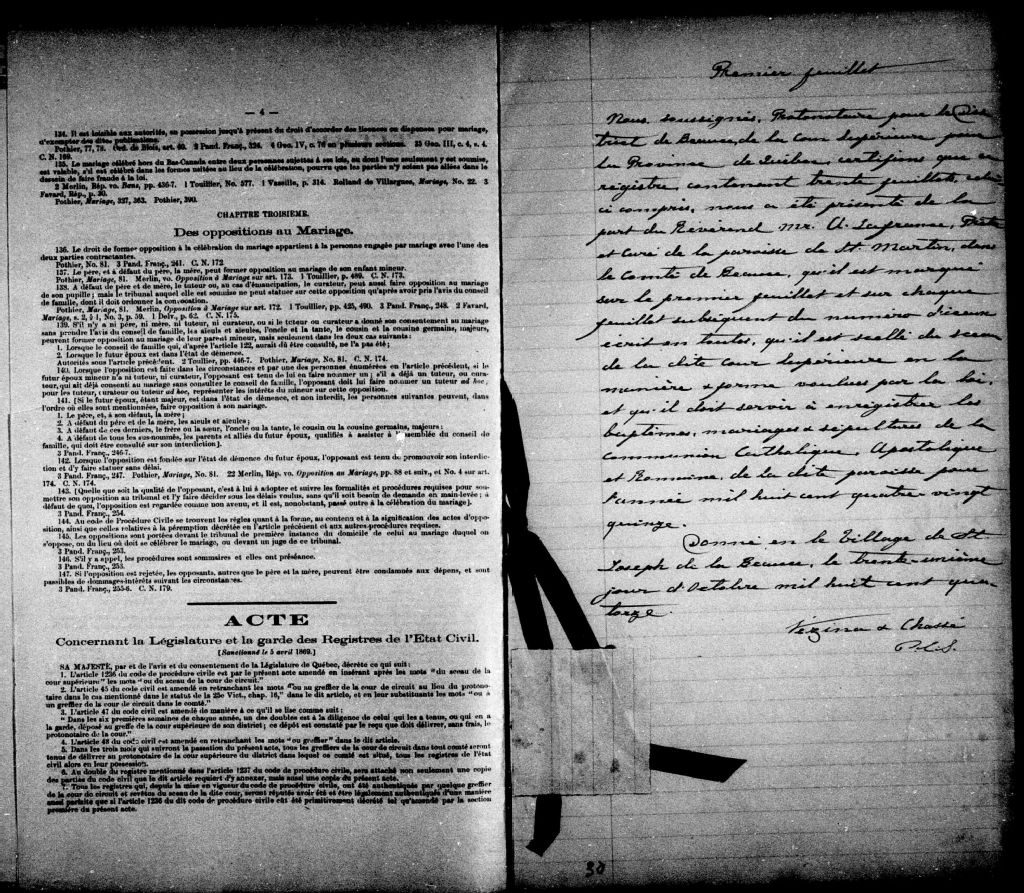 — 4 —
134. Il est loisible aux autorités, en possession jusqu'à présent du droit d'accorder des licences ou dispenses pour mariage,
d'exempter des dites publications.
Pothier, 77, 78. Ord. de Blois, art. 40. 2 Pand. Franç., 324. 4 Geo. IV, c. 76 en plusieurs sections. 35 Geo. III, c. 4, s. 4.
C. N. 169.
135. Le mariage célébré hors du Bas-Canada entre deux personnes sujettes à ses lois, ou dont l'une seulement y est soumise,
est valable, s'il est célébré dans les formes usitées au lieu de la célébration, pourvu que les parties n'y soient pas allées dans le
dessein de faire fraude à la loi.
2 Merlin, Rép. vo. Bans, pp. 436-7. 1 Touillier, No. 577. 1 Vazeille, p. 314. Rolland de Villargues, Mariage, No. 22. 3
Favard, Rép., p. 30.
Pothier, Mariage, 327, 363. Pothier, 390.
CHAPITRE TROISIEME.
Des oppositions au Mariage.
136. Le droit de former opposition à la célébration du mariage appartient à la personne engagée par mariage avec l'une des
deux parties contractantes.
Pothier, No. 81. 3 Pand. Franç., 241. C. N. 172
137. Le père, et à défaut du père, la mère, peut former opposition au mariage de son enfant mineur.
Pothier, Mariage, 81. Merlin, vo. Opposition à Mariage sur art. 173. 1 Touillier, p. 489. C. N. 173.
138. A défaut de père et de mère, le tuteur ou, au cas d'émancipation, le curateur, peut aussi faire opposition au mariage
de son pupille; mais le tribunal auquel elle est soumise ne peut statuer sur cette opposition qu'après avoir pris l'avis du conseil
de famille, dont il doit ordonner la convocation.
Pothier, Mariage, 81. Merlin, Opposition à Mariage sur art. 172. 1 Toullier, pp. 425, 490. 3 Pand. Franç., 248. 2 Favard,
Mariage, s. 2, § 1, No. 3, p. 59. 1 Delv., p. 62. C. N. 175.
139. S'il n'y a ni père, ni mère, ni tuteur, ni curateur, ou si le tuteur ou curateur a donné son consentement au mariage
sans prendre l'avis du conseil de famille, les aïeuls et aïeules, l'oncle et la tante, le cousin et la cousine germains, majeurs,
peuvent former opposition au mariage de leur parent mineur, mais seulement dans les deux cas suivants:
1. Lorsque le conseil de famille qui, d'après l'article 122, aurait dû être consulté, ne l'a pas été;
2. Lorsque le futur époux est dans l'état de démence.
Autorités sous l'article précédent. 2 Toullier, pp. 446-7. Pothier, Mariage, No. 81. C. N. 174.
140. Lorsque l'opposition est faite dans les circonstances et par une des personnes énumérées en l'article précédent, si le
futur époux mineur n'a ni tuteur, ni curateur, l'opposant est tenu de lui en faire nommer un; s'il a déjà un tuteur, ou cura-
teur, qui ait déjà consenti au mariage sans consulter le conseil de famille, l'opposant doit lui faire nommer un tuteur ad hoc,
pour les tuteur, curateur ou tuteur ad hoc, représenter les intérêts du mineur sur cette opposition.
141. [Si le futur époux, étant majeur, est dans l'état de démence, et non interdit, les personnes suivantes peuvent, dans
l'ordre où elles sont mentionnées, faire opposition à son mariage.
1. Le père, et, à son défaut, la mère;
2. A défaut du père et de la mère, les aïeuls et aïeules;
3. A défaut de ces derniers, le frère ou la sœur, l'oncle ou la tante, le cousin ou la cousine germains, majeurs;
4. A défaut de tous les sus-nommés, les parents et alliés du futur époux, qualifiés à assister à l'assemblée du conseil de
famille, qui doit être consulté sur son interdiction].
3 Pand. Franç., 246-7.
142. Lorsque l'opposition est fondée sur l'état de démence du futur époux, l'opposant est tenu de promouvoir son interdic-
tion et d'y faire statuer sans délai.
3 Pand. Franç., 247. Pothier, Mariage, No. 81. 22 Merlin, Rép. vo. Opposition au Mariage, pp. 88 et suiv., et No. 4 sur art.
174. C. N. 174.
143. [Quelle que soit la qualité de l'opposant, c'est à lui à adopter et suivre les formalités et procédures requises pour sou-
mettre son opposition au tribunal et l'y faire décider sous les délais voulus, sans qu'il soit besoin de demande en main-levée; à
défaut de quoi, l'opposition est regardée comme non avenu, et il est, nonobstant, passé outre à la célébration du mariage].
3 Pand. Franç., 254.
144. Au code de Procédure Civile se trouvent les règles quant à la forme, au contenu et à la signification des actes d'oppo-
sition, ainsi que celles relatives à la péremption décrétée en l'article précédent et aux autres-procédures requises.
145. Les oppositions sont portées devant le tribunal de première instance du domicile de celui au mariage duquel on
s'oppose, ou du lieu où doit se célébrer le mariage, ou devant un juge de ce tribunal.
3 Pand. Franç., 253.
146. S'il y a appel, les procédures sont sommaires et elles ont préséance.
3 Pand. Franç., 253.
147. Si l'opposition est rejetée, les opposants, autres que le père et la mère, peuvent être condamnés aux dépens, et sont
passibles de dommages-intérêts suivant les circonstances.
3 Pand. Franç., 255-6. C. N. 179.
ACTE
Concernant la Législature et la garde des Registres de l'Etat Civil.
[Sanctionné le 5 avril 1869.]
SA MAJESTÉ, par et de l'avis et du consentement de la Législature de Québec, décrète ce qui suit:
1. L'article 1236 du code de procédure civile est par le présent acte amendé en insérant après les mots "du sceau de la
cour supérieure" les mots "ou du sceau de la cour de circuit."
2. L'article 45 du code civil est amendé en retranchant les mots "ou au greffier de la cour de circuit au lieu du protono-
taire dans le cas mentionné dans le statut de la 25e Vict., chap. 16," dans le dit article, et en leur substituant les mots "ou à
un greffier de la cour de circuit dans le comté."
3. L'article 47 du code civil est amendé de manière à ce qu'il se lise comme suit:
"Dans les six premières semaines de chaque année, un des doubles est à la diligence de celui qui les a tenus, ou qui en a
la garde, déposé au greffe de la cour supérieure de son district; ce dépôt est constaté par le reçu que doit délivrer, sans frais, le
protonotaire de la cour."
4. L'article 48 du code civil est amendé en retranchant les mots "ou greffier" dans le dit article.
5. Dans les trois mois qui suivront la passation du présent acte, tous les greffiers de la cour de circuit dans tout comté seront
tenus de délivrer au protonotaire de la cour supérieure du district dans lequel ce comté est situé, tous les registres de l'état
civil alors en leur possession.
6. Au double du registre mentionné dans l'article 1237 du code de procédure civile, sera attaché non seulement une copie
des parties du code civil que le dit article requiert d'y annexer, mais aussi une copie du présent acte.
7. Tous les registres qui, depuis la mise en vigueur du code de procédure civile, ont été authentiqués par quelque greffier
de la cour de circuit et revêtus du sceau de la dite cour, seront réputés avoir été et être légalement authentiqués d'une manière
aussi parfaite que si l'article 1236 du dit code de procédure civile eût été primitivement décrété tel qu'amendé par la section
première du présent acte.
Premier feuillet
Nous, soussignés, Protonotaire pour le Dis-
trict de Beauce, de la Cour Supérieure pour
la Province de Québec, certifions que ce
registre, contenant trente feuillets, celui
ci compris, nous a été présenté de la
part du Révérend Mr. A. Lafrance, Prêtre
et Curé de la paroisse de St. Martin, dans
le Comté de Beauce, qu'il est marqué
sur le premier feuillet et sur chaque
feuillet subséquent du numéro d'iceux
écrit en toutes, qu'il est scellé du sceau
de la dite cour Supérieure, en la
manière & forme voulues par la loi,
et qu'il doit servir à enregistrer les
baptêmes, mariages & sépultures de la
Communion Catholique, Apostolique
et Romaine, de la dite paroisse pour
l'année mil huit cent quatre-vingt
quinze.
Donné en le Village de St
Joseph de la Beauce, le trente-unième
jour d'Octobre mil huit cent qua-
torze.
Vezina & Chassé
P.C.S.
30